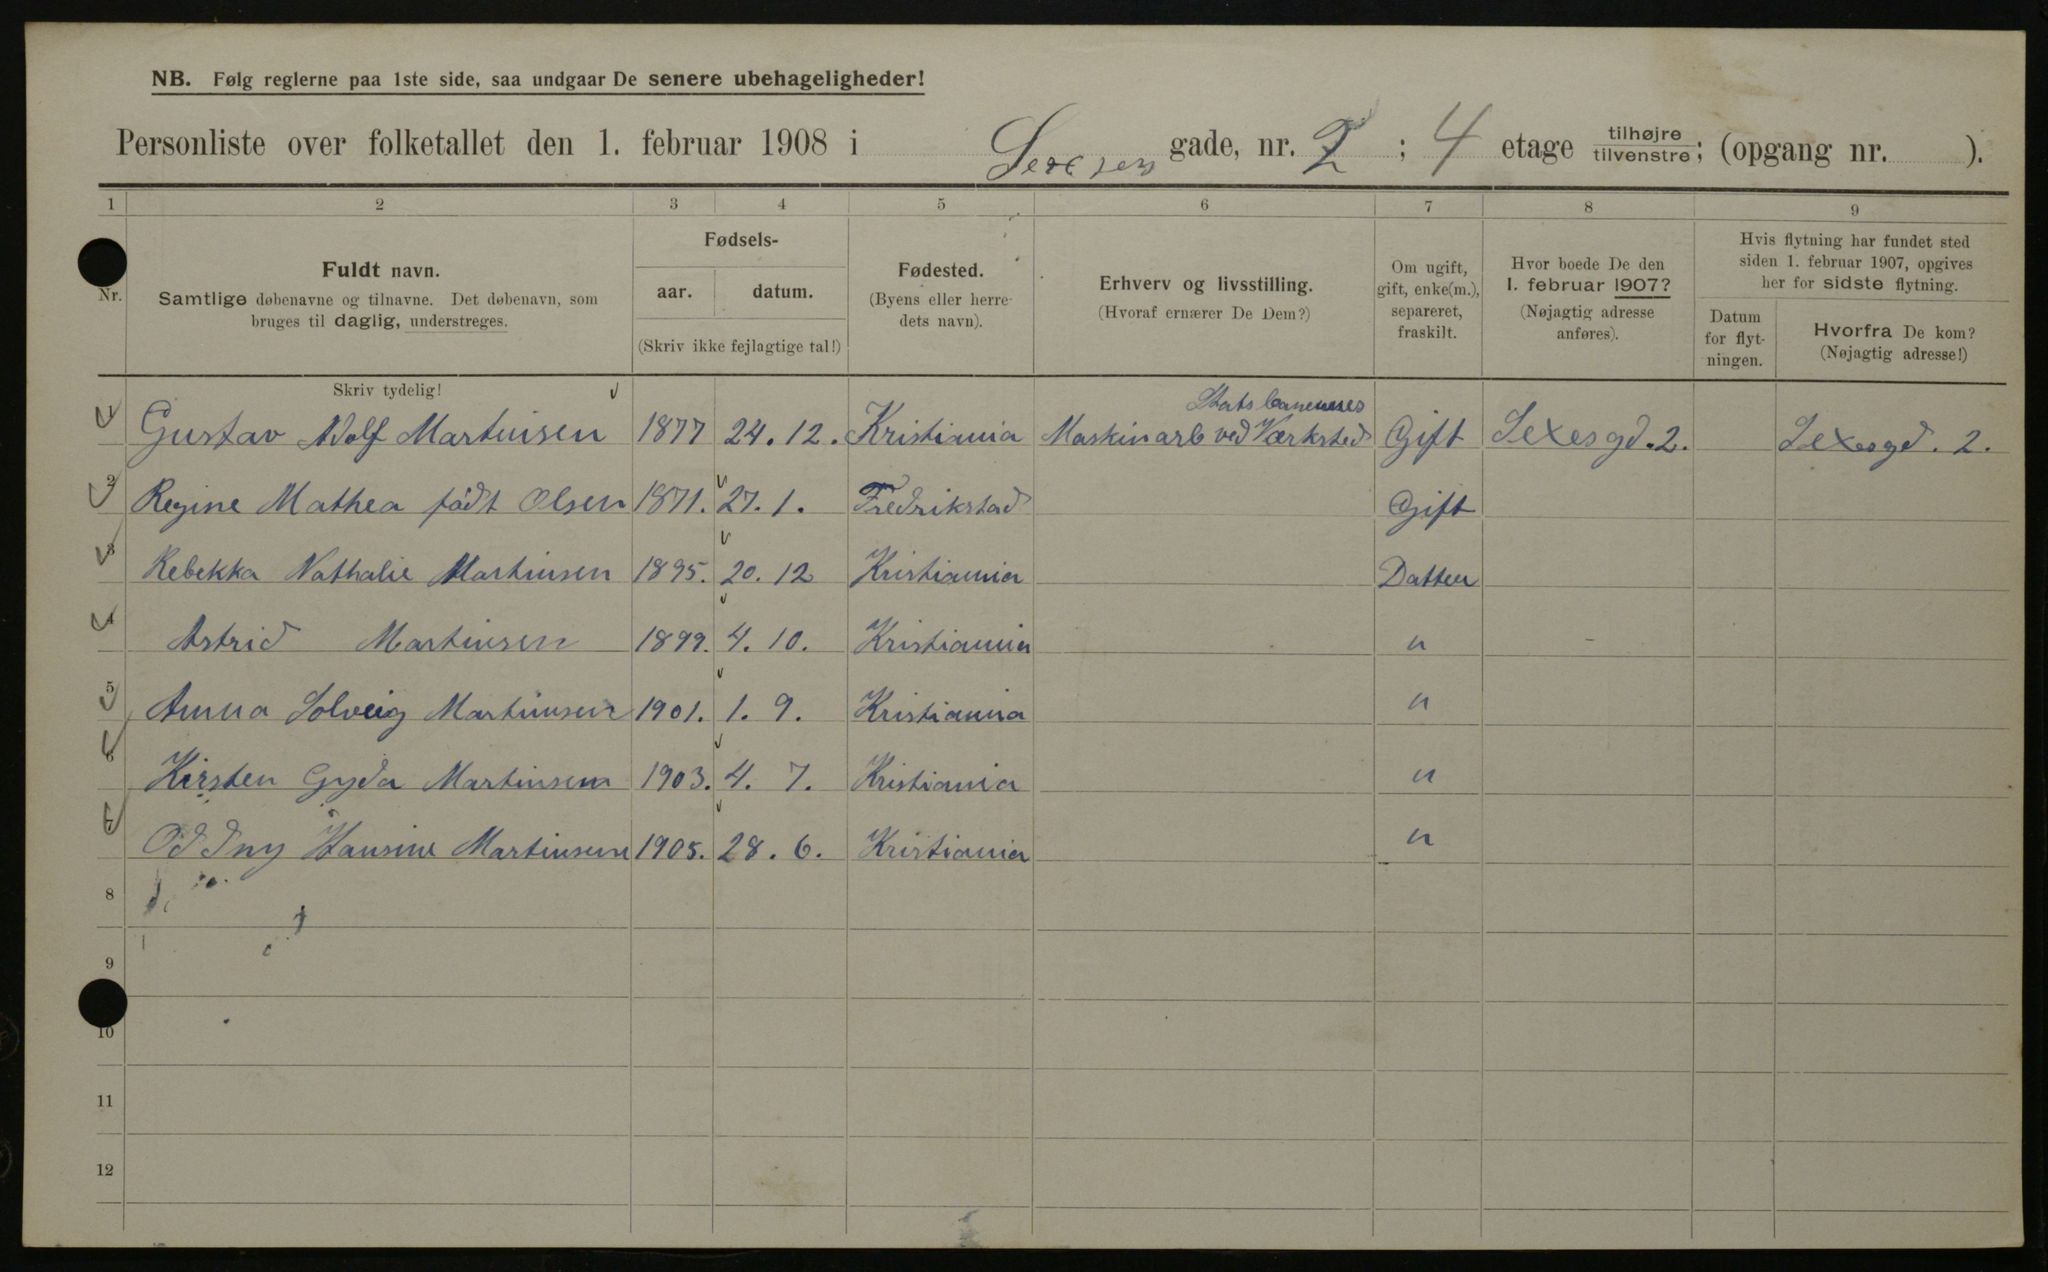 NB. Følg reglerne paa 1ste side, saa undgaar De senere ubehageligheder!
Personliste over folketallet den 1. februar 1908 i Sexes gade, nr. 2 ; 4 etage tilhøjre / tilvenstre ; (opgang nr. ).
1 2 3 4 5 6 7 8 9
Nr.
Fuldt navn.
Samtlige døbenavne og tilnavne. Det døbenavn, som
bruges til daglig, understreges.
Fødsels-
aar. datum.
(Skriv ikke fejlagtige tal!)
Fødested.
(Byens eller herre-
dets navn).
Erhverv og livsstilling.
(Hvoraf ernærer De Dem?)
Om ugift,
gift, enke(m.),
separeret,
fraskilt.
Hvor boede De den
1. februar 1907?
(Nøjagtig adresse
anføres).
Hvis flytning har fundet sted
siden 1. februar 1907, opgives
her for sidste flytning.
Datum
for flyt-
ningen.
Hvorfra De kom?
(Nøjagtig adresse!)
Skriv tydelig!
Statsbanernes
1 Gustav Adolf Martinsen 1877 24. 12. Kristiania Maskinarb ved Værksted Gift Sexesgd. 2. Sexesgd. 2.
2 Regine Mathea født Olsen 1871. 27. 1. Fredrikstad Gift
3 Rebekka Nathalie Martinsen 1895. 20. 12 Kristiania Datter
4 Astrid Martinsen 1899. 4. 10. Kristiania "
5 Anna Solveig Martinsen 1901. 1. 9. Kristiania "
6 Kirsten Gyda Martinsen 1903. 4. 7. Kristiania "
7 Oddny Hansine Martinsen 1905. 28. 6. Kristiania "
8
9
10
11
12